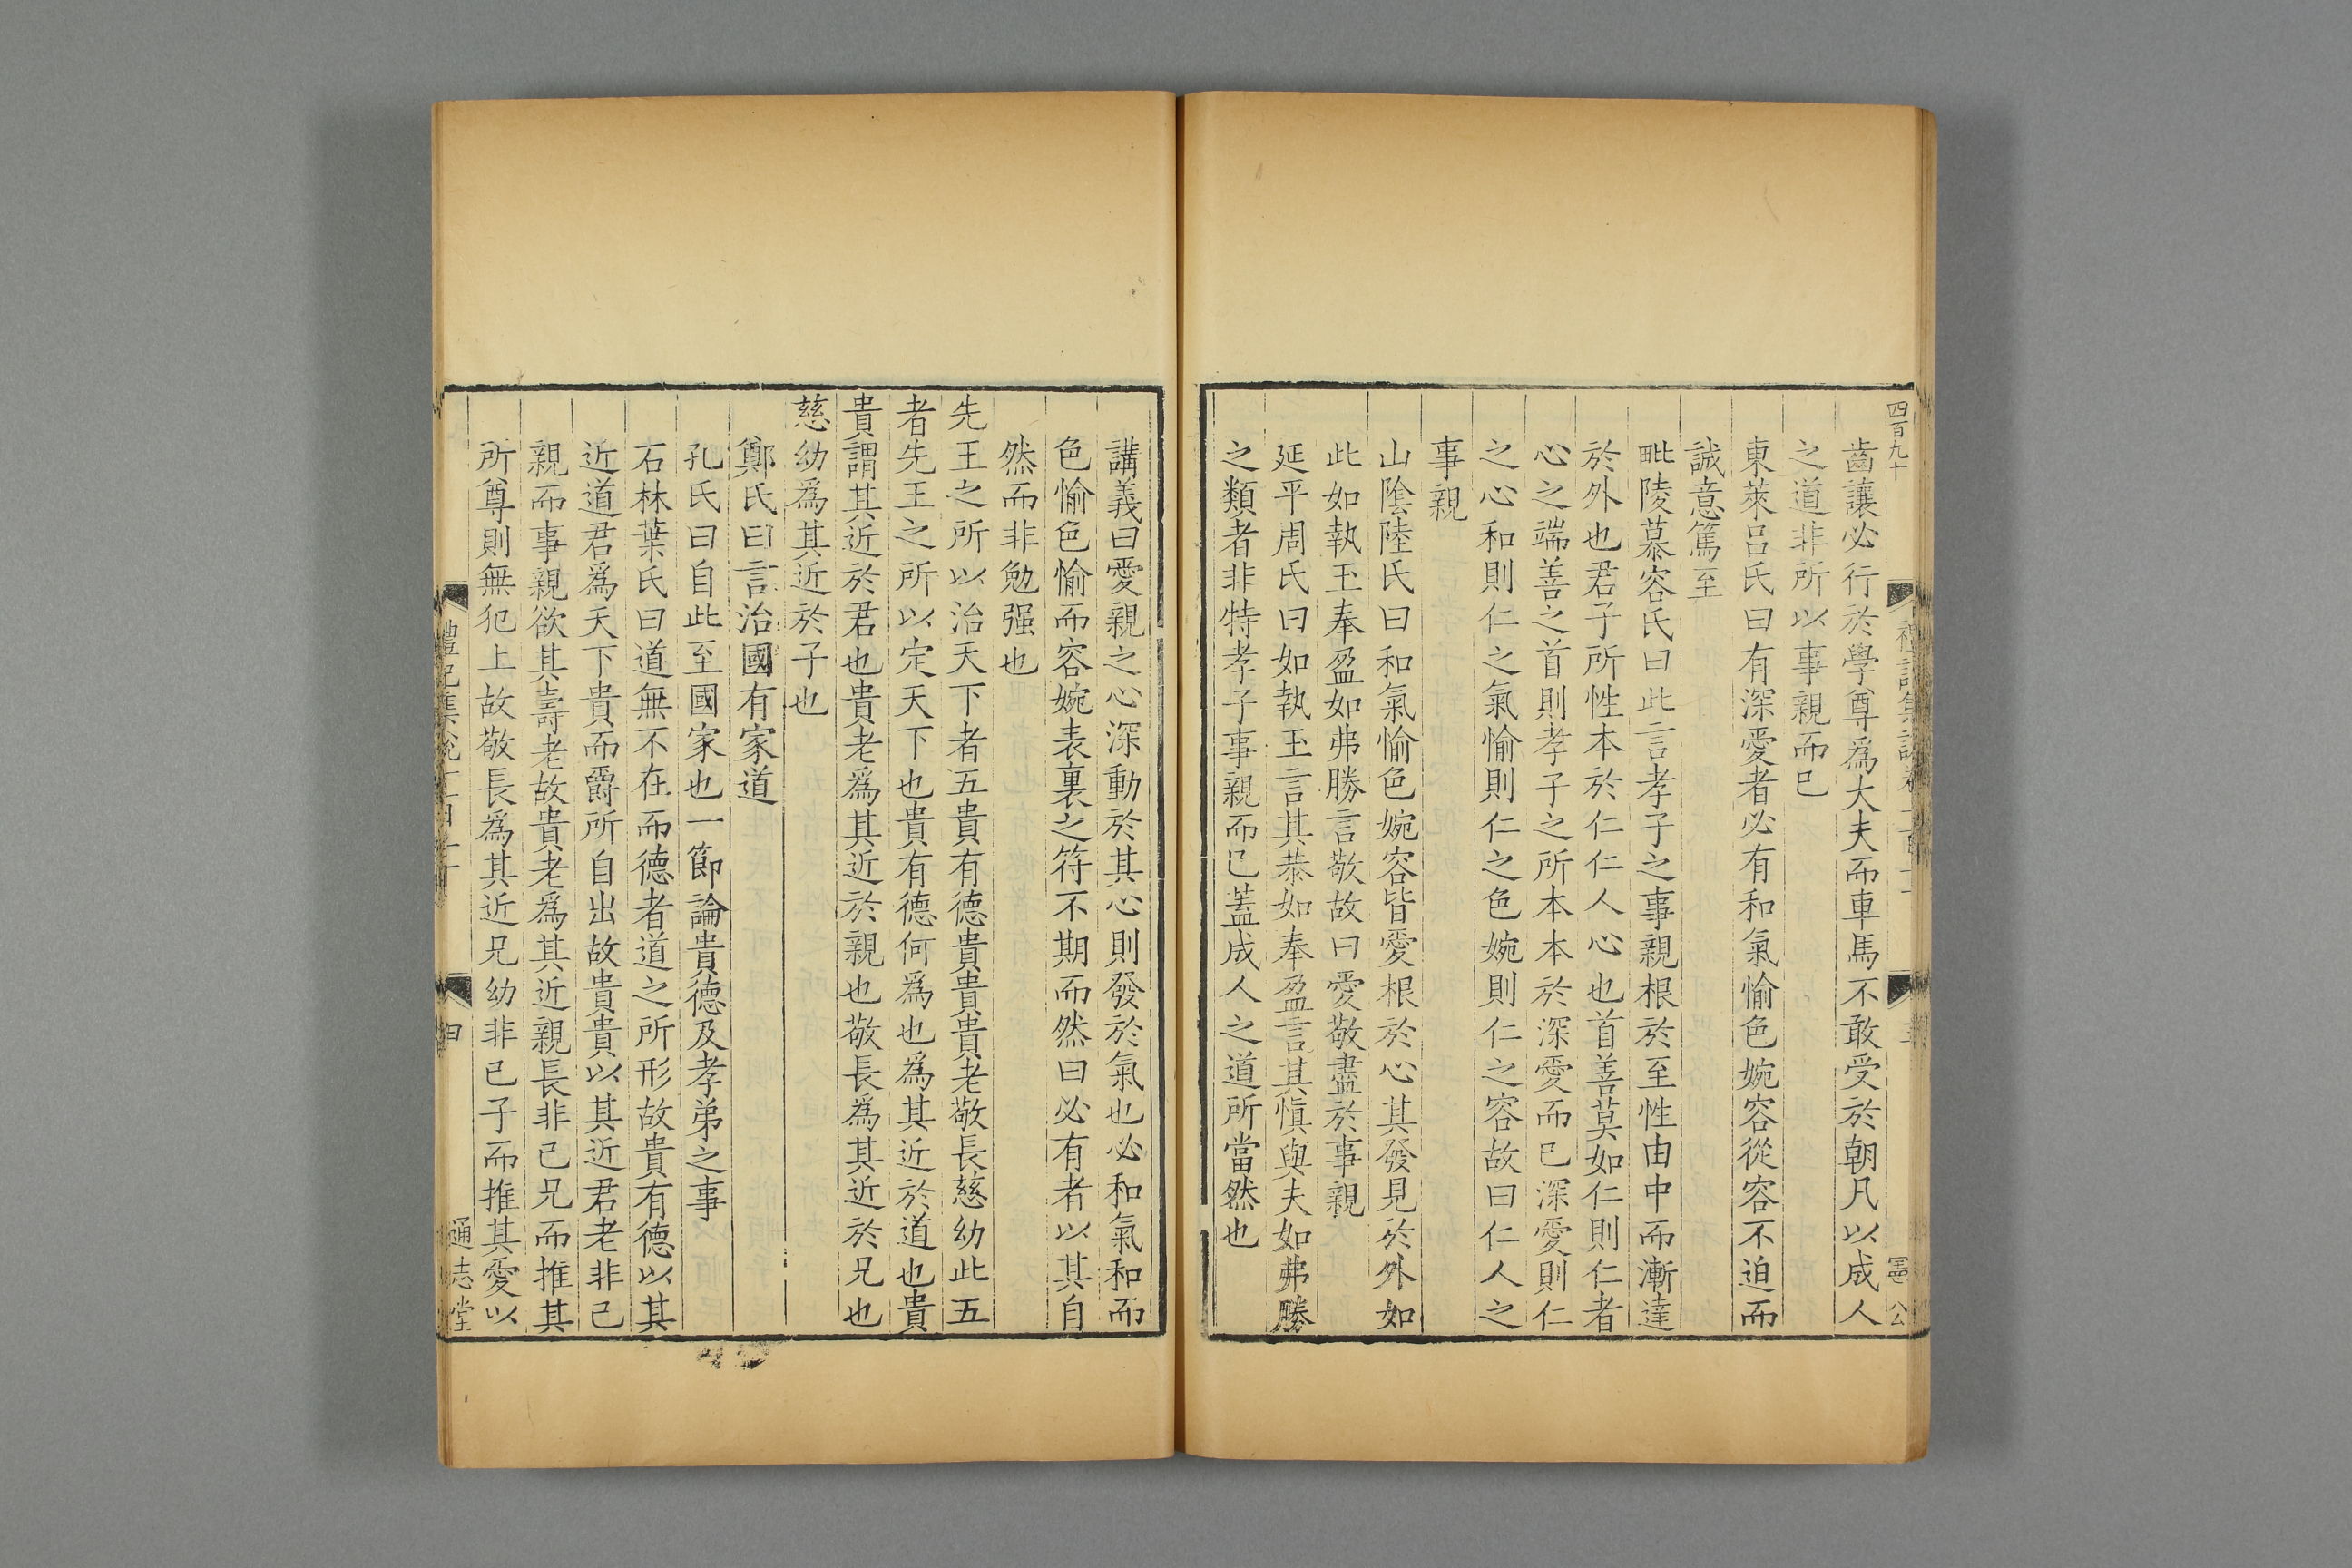 四百九十
齒讓必行於學尊爲大夫而車馬不敢受於朝凡以成人
之道非所以事親而已
東萊呂氏曰有深愛者必有和氣愉色婉容從容不迫而
誠意篤至
毗陵慕容氏曰此言孝子之事親根於至性由中而漸達
於外也君子所性本於仁仁人心也首善莫如仁則仁者
心之端善之首則孝子之所本本於深愛而已深愛則仁
之心和則仁之氣愉則仁之色婉則仁之容故曰仁人之
事親
山陰陸氏曰和氣愉色婉容皆愛根於心其發見於外如
此如執玉奉盈如弗勝言敬故曰愛敬盡於事親
延平周氏曰如執玉言其恭如奉盈言其愼與夫如弗勝
之類者非特孝子事親而已蓋成人之道所當然也
講義曰愛親之心深動於其心則發於氣也必和氣和而
色愉色愉而容婉表裏之符不期而然曰必有者以其自
然而非勉强也
先王之所以治天下者五貴有德貴貴貴老敬長慈幼此五
者先王之所以定天下也貴有德何爲也爲其近於道也貴
貴謂其近於君也貴老爲其近於親也敬長爲其近於兄也
慈幼爲其近於子也
鄭氏曰言治國有家道
孔氏曰自此至國家也一節論貴德及孝弟之事
石林葉氏曰道無不在而德者道之所形故貴有德以其
近道君爲天下貴而爵所自出故貴貴以其近君老非己
親而事親欲其壽老故貴老爲其近親長非己兄而推其
所尊則無犯上故敬長爲其近兄幼非己子而推其愛以
禮記集說
四
通志堂